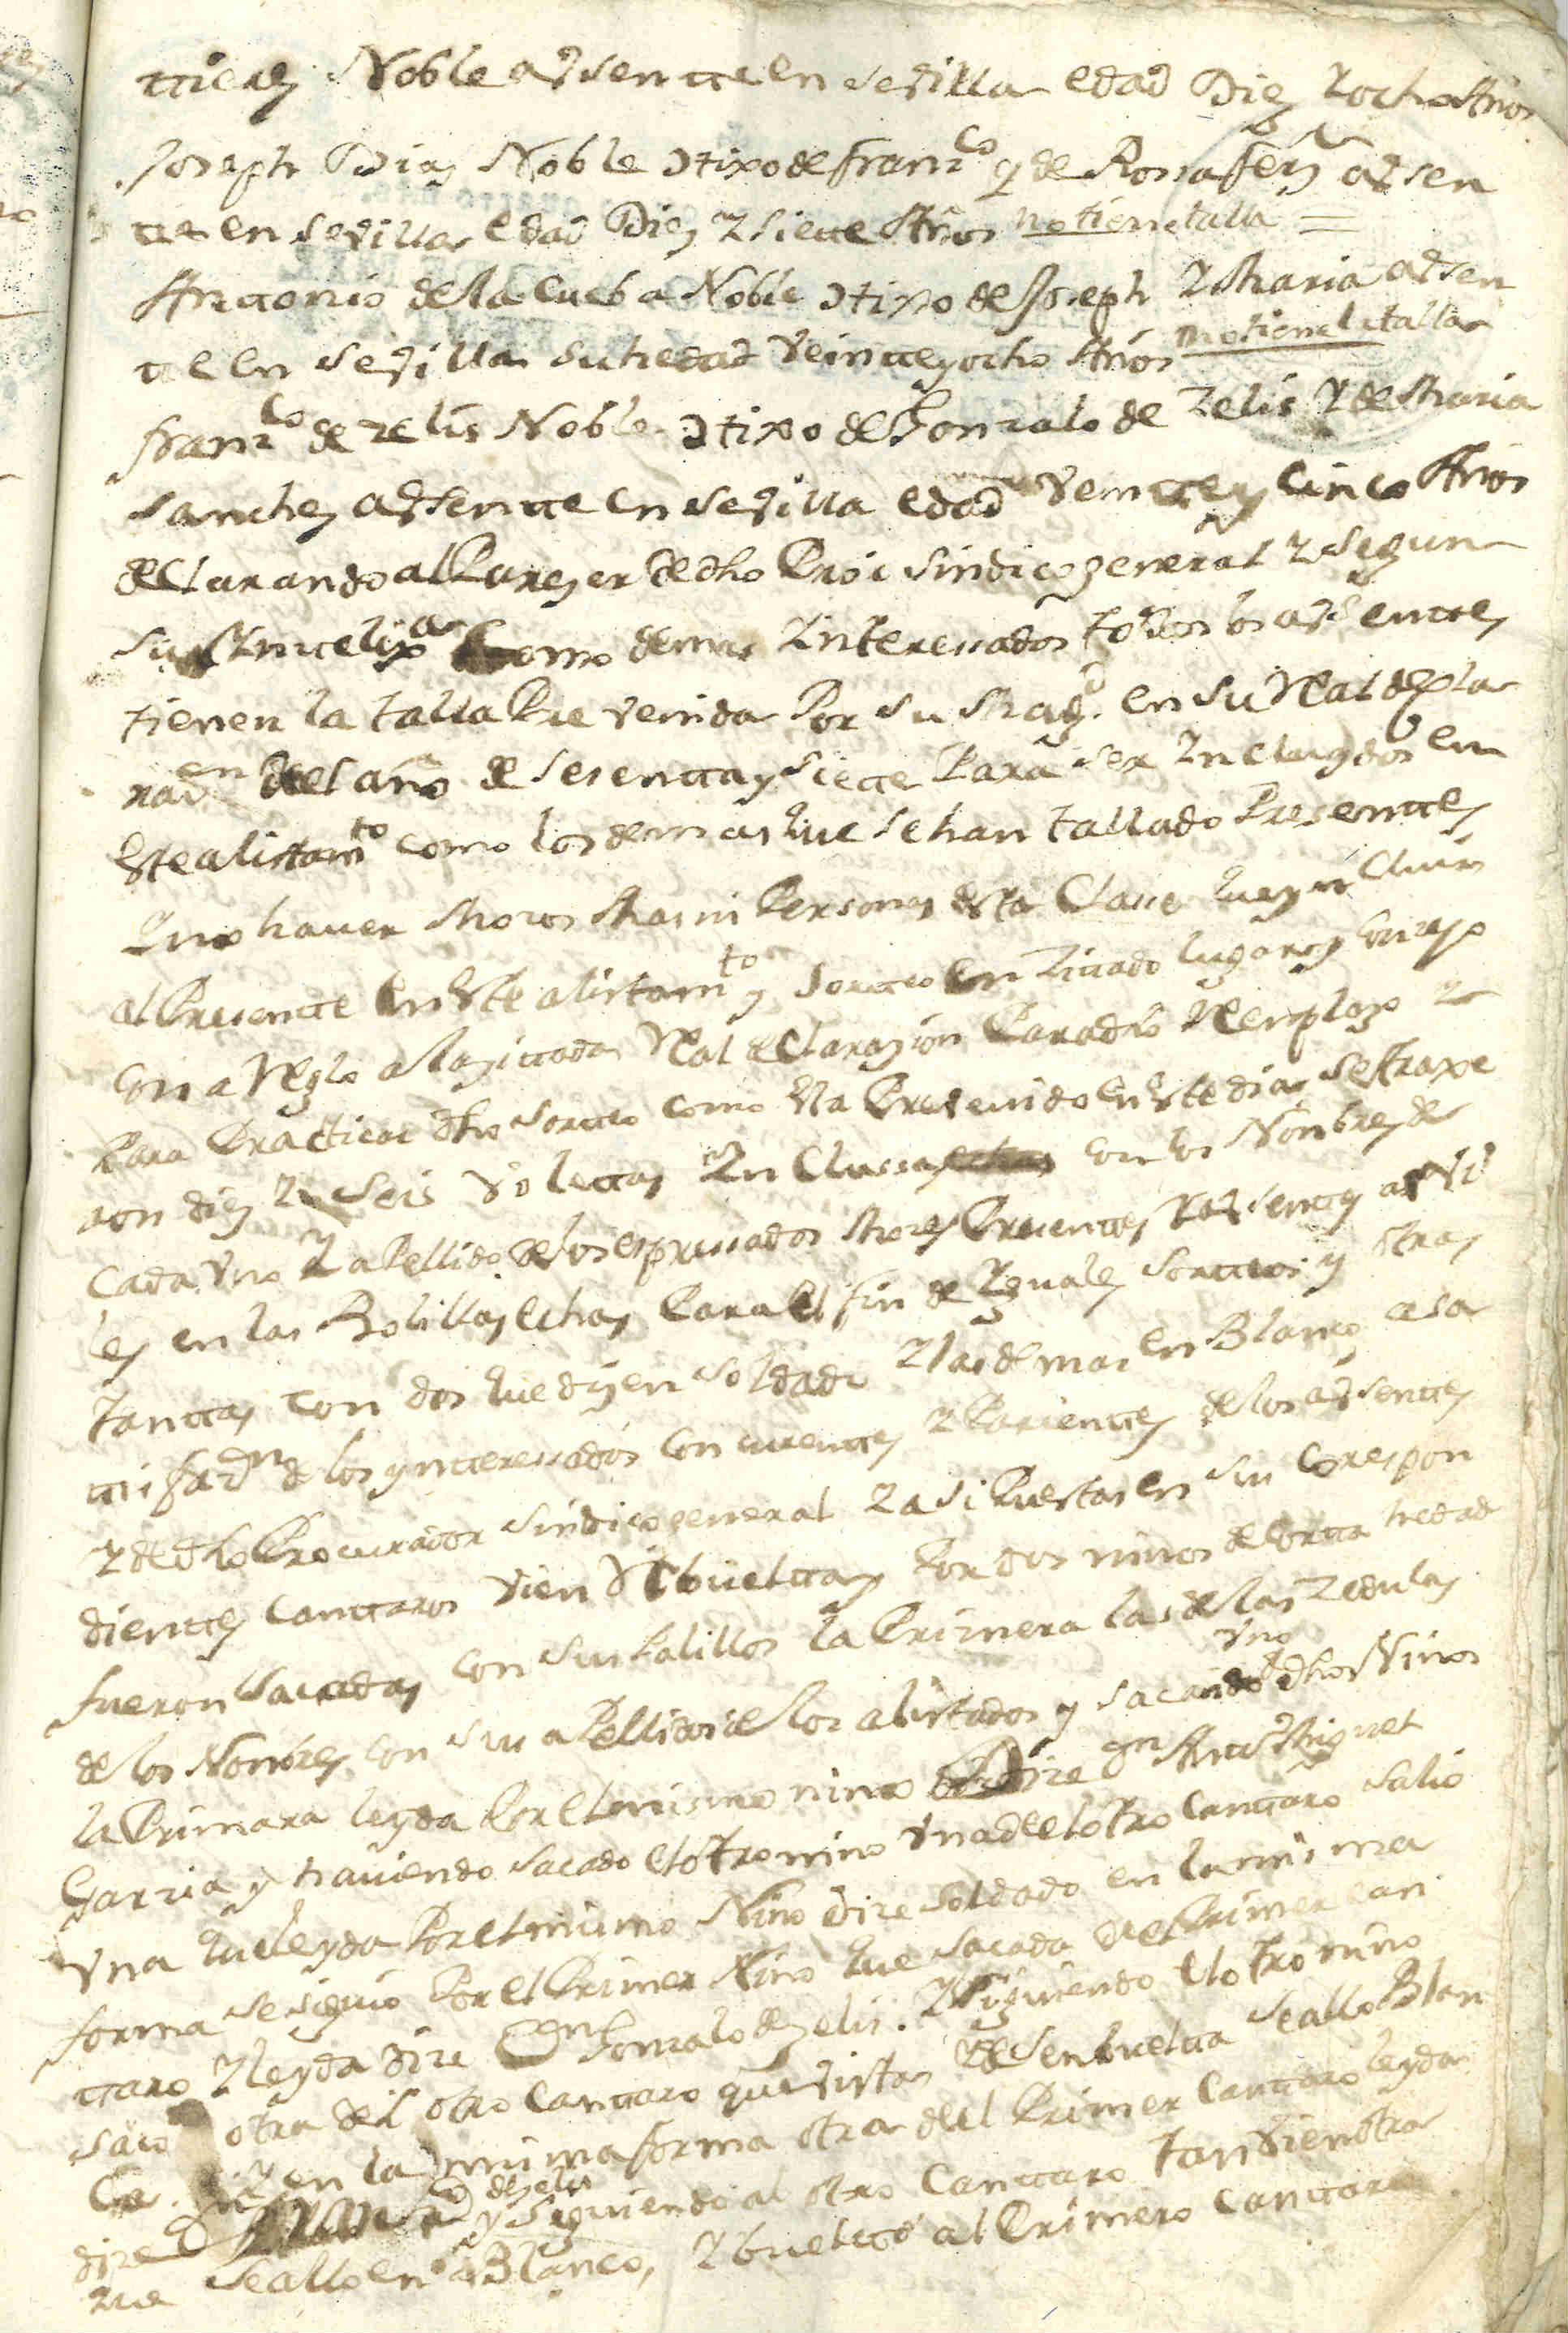 ttierez Noble avsentte en sevilla edad Diez y ocho Años
Joseph Diaz Noble Hixo de franco y de Rosa ferz avsen
tte en sevilla edad Diez y siette Años no tiene talla =
Anttonio de la Cueba Noble Hixo de Joseph y Maria avsen
tte en sevilla su hedad veintte y ocho Años no tiene la talla
franco de zelis Noble Hixo de Gonzalo de zelis y de Maria
sanchez avsentte en sevilla edad veintte y cinco Años
declarando al Parezer de dho Pror sindico general y segun
su como demas Interesados todos los avsenttes
tienen la talla Prevenida Por su Magd. en su Real decla
razn del año de sesentta y siette Para ser Incluydos en
este alistamto como los demas que se han tallado Presenttes
y no haver Mozos Mas ni Personas desta Clase que yn Cluir
al Presentte en este alistamto y sortteo en zittado lugar y conzejo
con a Reglo a la zittada Real declarazion Para dho Remplazo y
Para Practicar dho sortteo como esta Prevenido en este dia se traxe
ron diez y seis volettas yn Clussas con los Nonbres de
cada vno y apellido de los espresados Mozos Presenttes y avsenttes
les en las Bolillas echas Para el fin de yguales sortteos y otras
tanttas con dos que dizen soldado y las demas en Blanco a sa
ttisfazn de los ynteresados con currenttes y Parienttes de los avsenttes
y de dho Procurador sindico general y asi Puestas en su Correspon
dienttes canttaros vien Rebuelttas Por dos niños de cortta hedad
fueron sacadas con sus Palillos la Primera las de las zedulas
de los Nonbres con sus apellidos de los alistados y sacando vno de dhos Niños
la Primera leyda Por el mismo nino dize Dn Antto Miguel
Garzia y haviendo sacado el otro nino vna de el otro canttaro salio
vna que leyda Por el mismo Nino dize soldado en la misma
forma se siguio Por el Primer Nino que sacada del Primer can
ttaro y leyda dize Dn Gonzalo de zelis. y siguiendo el otro nino
saco otra del otro canttaro que vista y desenbueltta se allo Blan
Ca. y en la misma forma otra del Primer canttaro leyda
dize Dn franco de zelis y siguiendo al otro canttaro tanvien otra
que se allo en Blanco, y bueltto al Primero canttaro